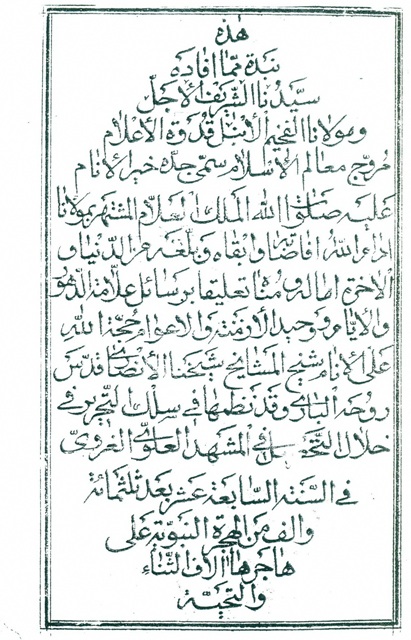 هذه
نبذة مما افاده
سيدنا الشريف الاجل
ومولانا الفخيم الأنبل قدوة الأعلام
مروج معالم الإسلام سمي جده خير الأنام
عليه صلوات الله الملك السلام المشتهر بمولانا
ادام الله افاضته وابقاه وبلغه من الدنيا و
الآخرة اماله ومناه تعليقا برسائل علامة الدهور
والأيام ووحيد الأزمنة والاعوام حجة الله
على الأنام شيخ المشايخ شيخنا الأنصاري قدس
روحه الباري وقد نظمها في سلك التحرير في
خلال التحصيل في المشهد العلوي الغروي
في السنة السابعة عشر بعد ثلثمائة
والف من الهجرة النبوية على
هاجرها آلاف الثناء
والتحية